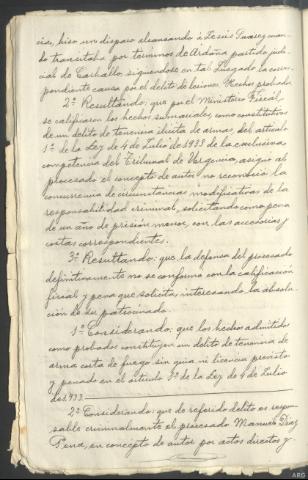 cia, hizo un disparo alcanzando a Jesús Suarez cuan-
do transitaba por términos de Ardaña partido judi-
cial de Carballo, siguiendose en tal Juzgado la corres-
pondiente causa por el delito de lesiones. Hechos probados
2º Resultando: que por el Ministerio Fiscal,
se calificaron los hechos sumariales como constitutivos
de un delito de tenencia ilicita de armas, del articulo
1º de la Ley de 4 de Julio de 1933 de la exclusiva
competencia del Tribunal de Urgencia, asignó al
procesado el concepto de autor no reconoció la
concurrencia de circunstancias modificativas de la
responsabilidad criminal, solicitando como pena
de un año de prisión menor, con las accesorias y
costas correspondientes.
3º Resultando: que la defensa del procesado
definitivamente no se conformó con la calificación
fiscal y pena que solicita, interesando la absolu-
ción de su patrocinado.
1º Considerando: que los hechos admitidos
como probados constituyen un delito de tenencia de
arma corta de fuego sin guia ni licencia previsto
y penado en el articulo 1º de la Ley de 4 de Julio
de 1933.
2º Considerando: que de referido delito es respon-
sable criminalmente el procesado Manuel Diaz
Pena, en concepto de autor por actos directos y
ARG